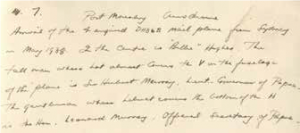 # 7. Port Moresby Aerodrome
Arrival of the Inaugural DH86B mail plane from Sydney
- May 1938. In the Centre is "Billie" Hughes. The
tall man whose hat almost covers the V in the fuselage
of the plane is Sir Hubert Murray, Lieut. Governor of Papua.
The gentleman whose helmet covers the bottom of the H
is the Hon. Leonard Murray. Official Secretary of Papua.